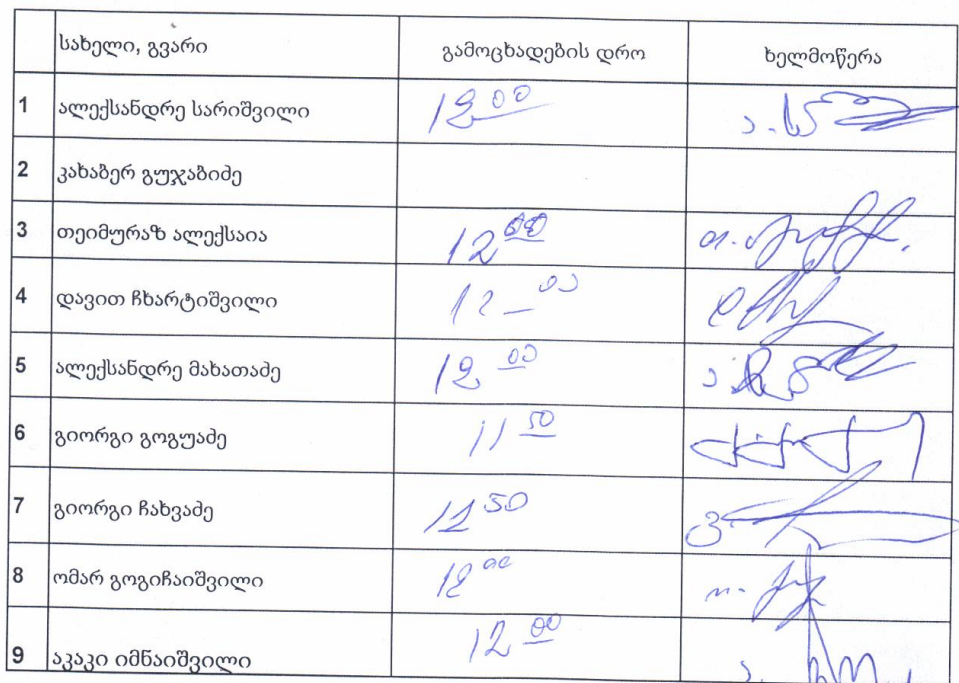 სახელი, გვარი გამოცხადების დრო ხელმოწერა
1 ალექსანდრე სარიშვილი 12 00
2 კახაბერ გუჯაბიძე
3 თეიმურაზ ალექსაია 12 00
4 დავით ჩხარტიშვილი 12 - 00
5 ალექსანდრე მახათაძე 12 00
6 გიორგი გოგუაძე 11 50
7 გიორგი ჩახვაძე 11 50
8 ომარ გოგიჩაიშვილი 12 00
9 აკაკი იმნაიშვილი 12 00